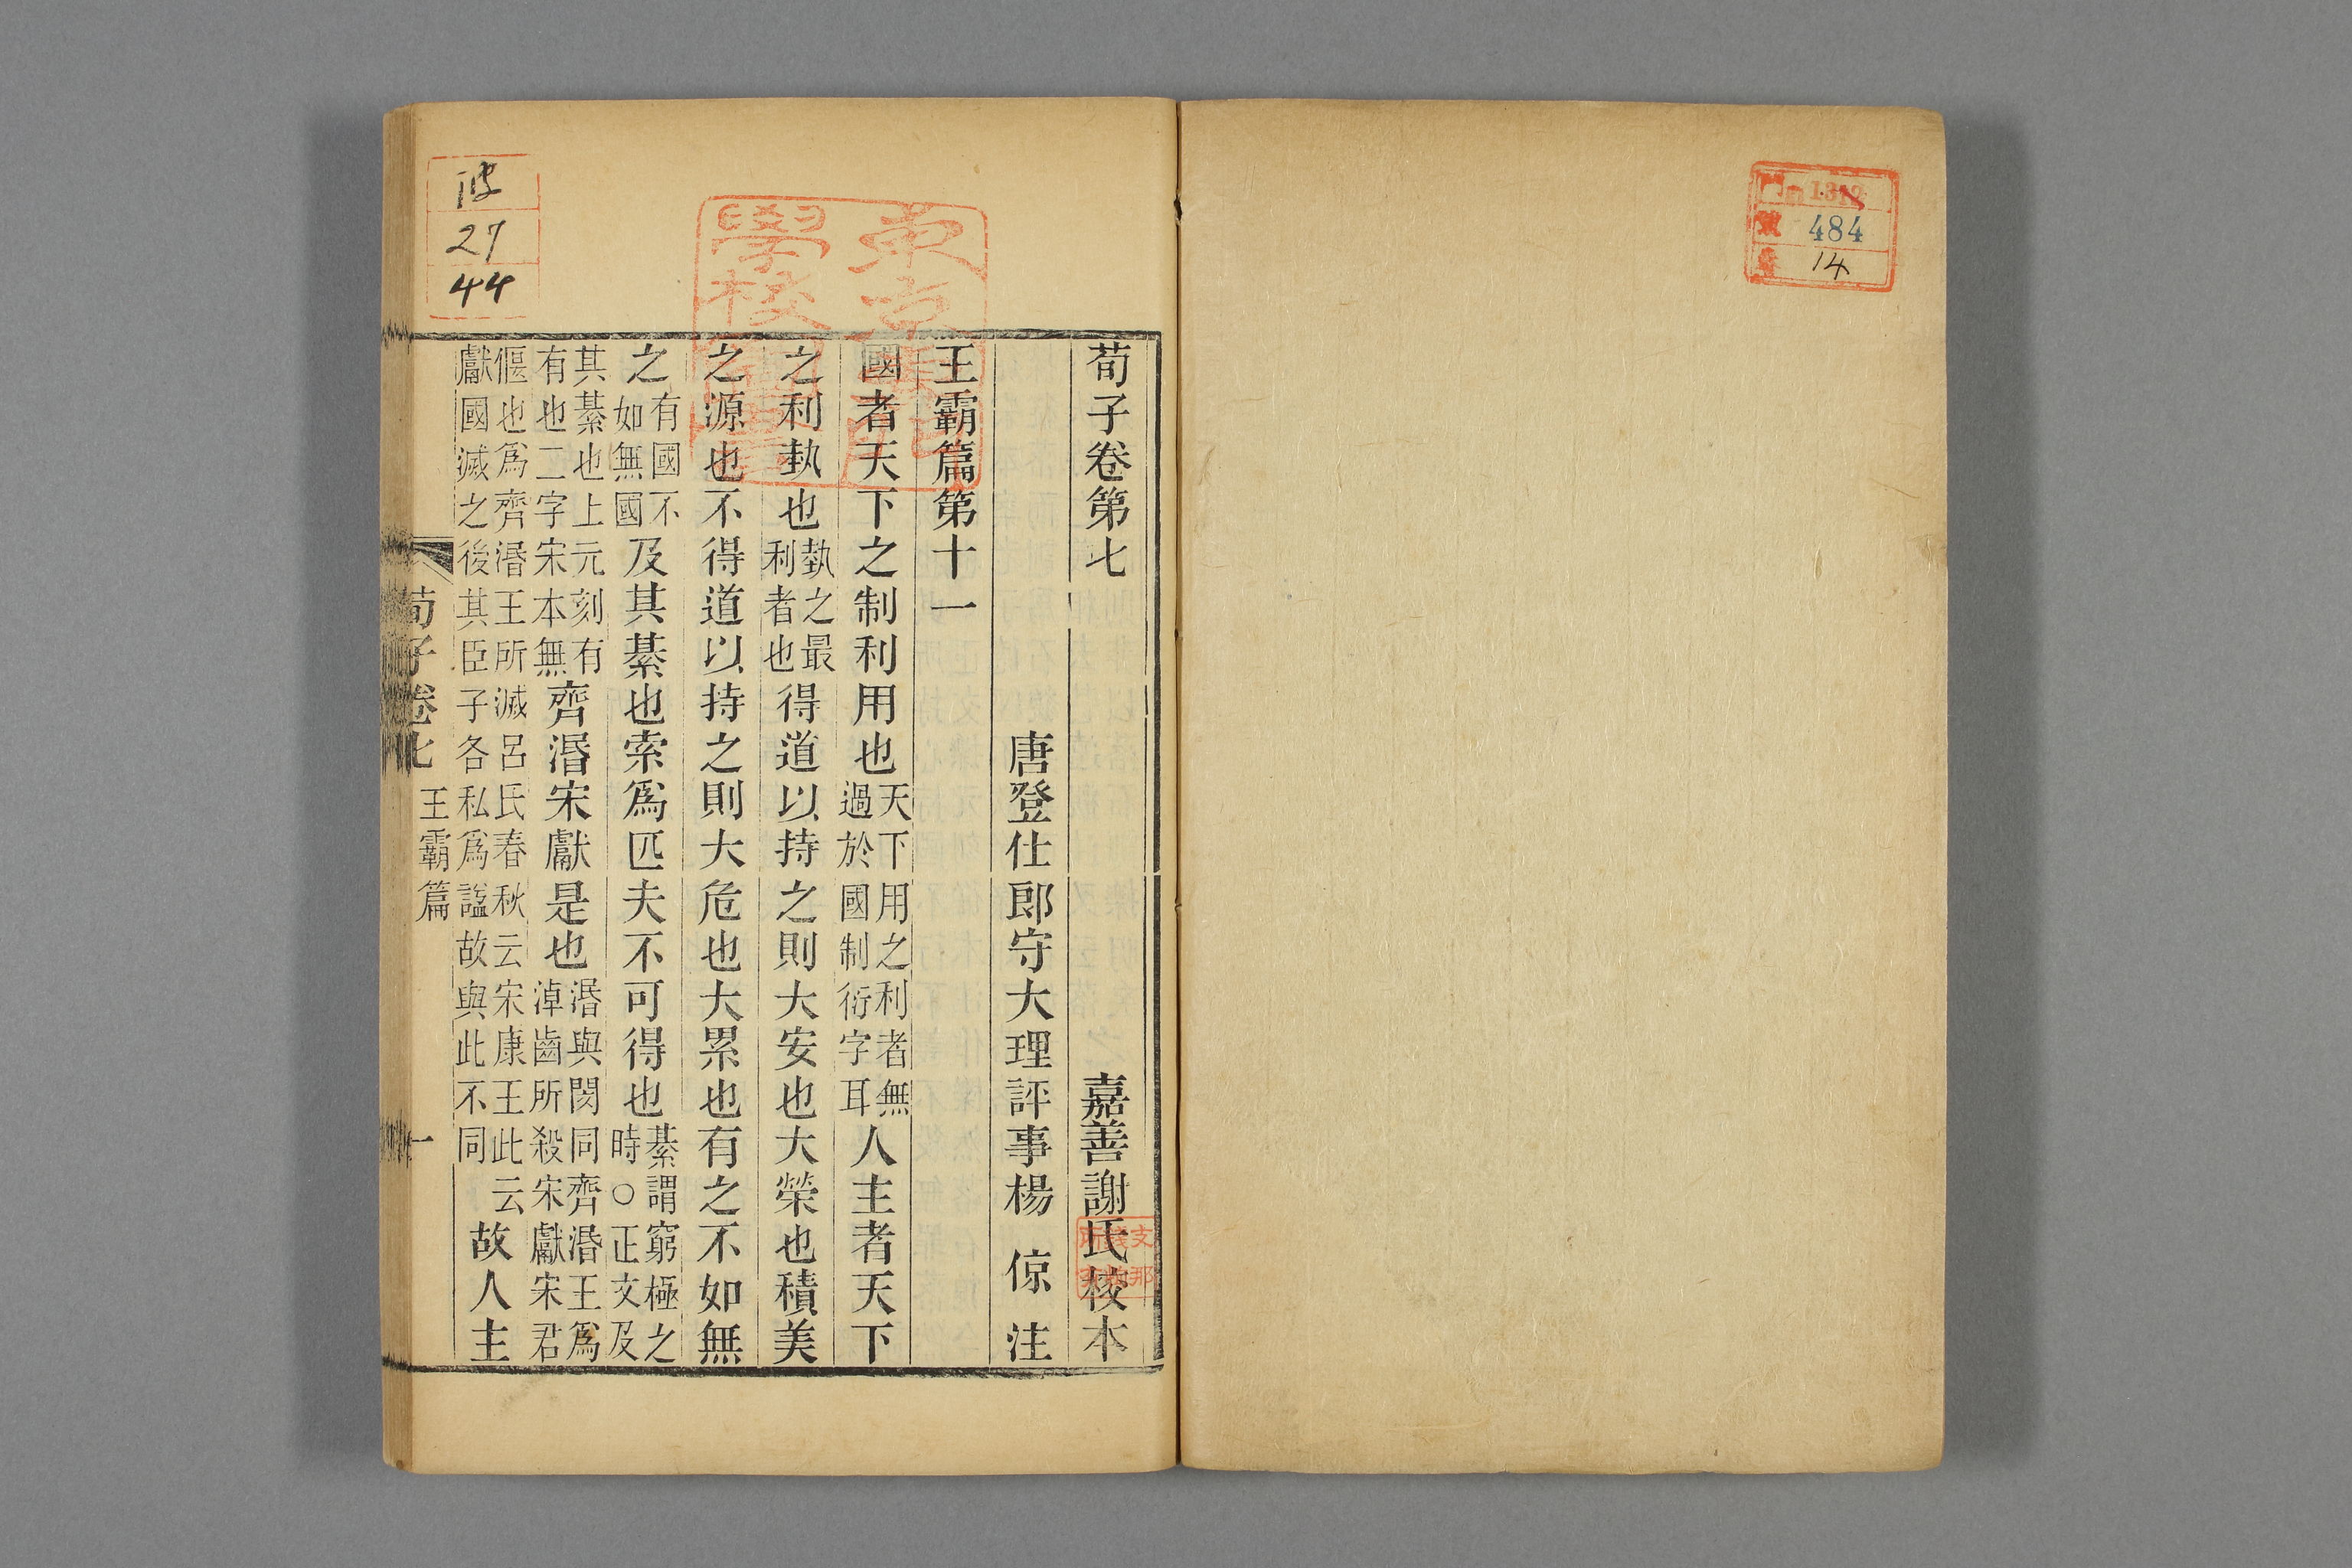 484
14
荀子卷第七 嘉善謝氏校本
唐登仕郎守大理評事楊 倞 注
王霸篇第十一
國者天下之制利用也天下用之利者無過於國制衍字耳人主者天下
之利埶也埶之最利者也得道以持之則大安也大榮也積美
之源也不得道以持之則大危也大累也有之不如無
之有國不如無國及其綦也索爲匹夫不可得也綦謂窮極之時○正文及
其綦也上元刻有有也二字宋本無齊湣宋獻是也湣與閔同齊湣王爲淖齒所殺宋獻宋君
偃也爲齊湣王所滅呂氏春秋云宋康王此云獻國滅之後其臣子各私爲諡故與此不同故人主
荀子卷七 王霸篇 一
27
44
東京
學校